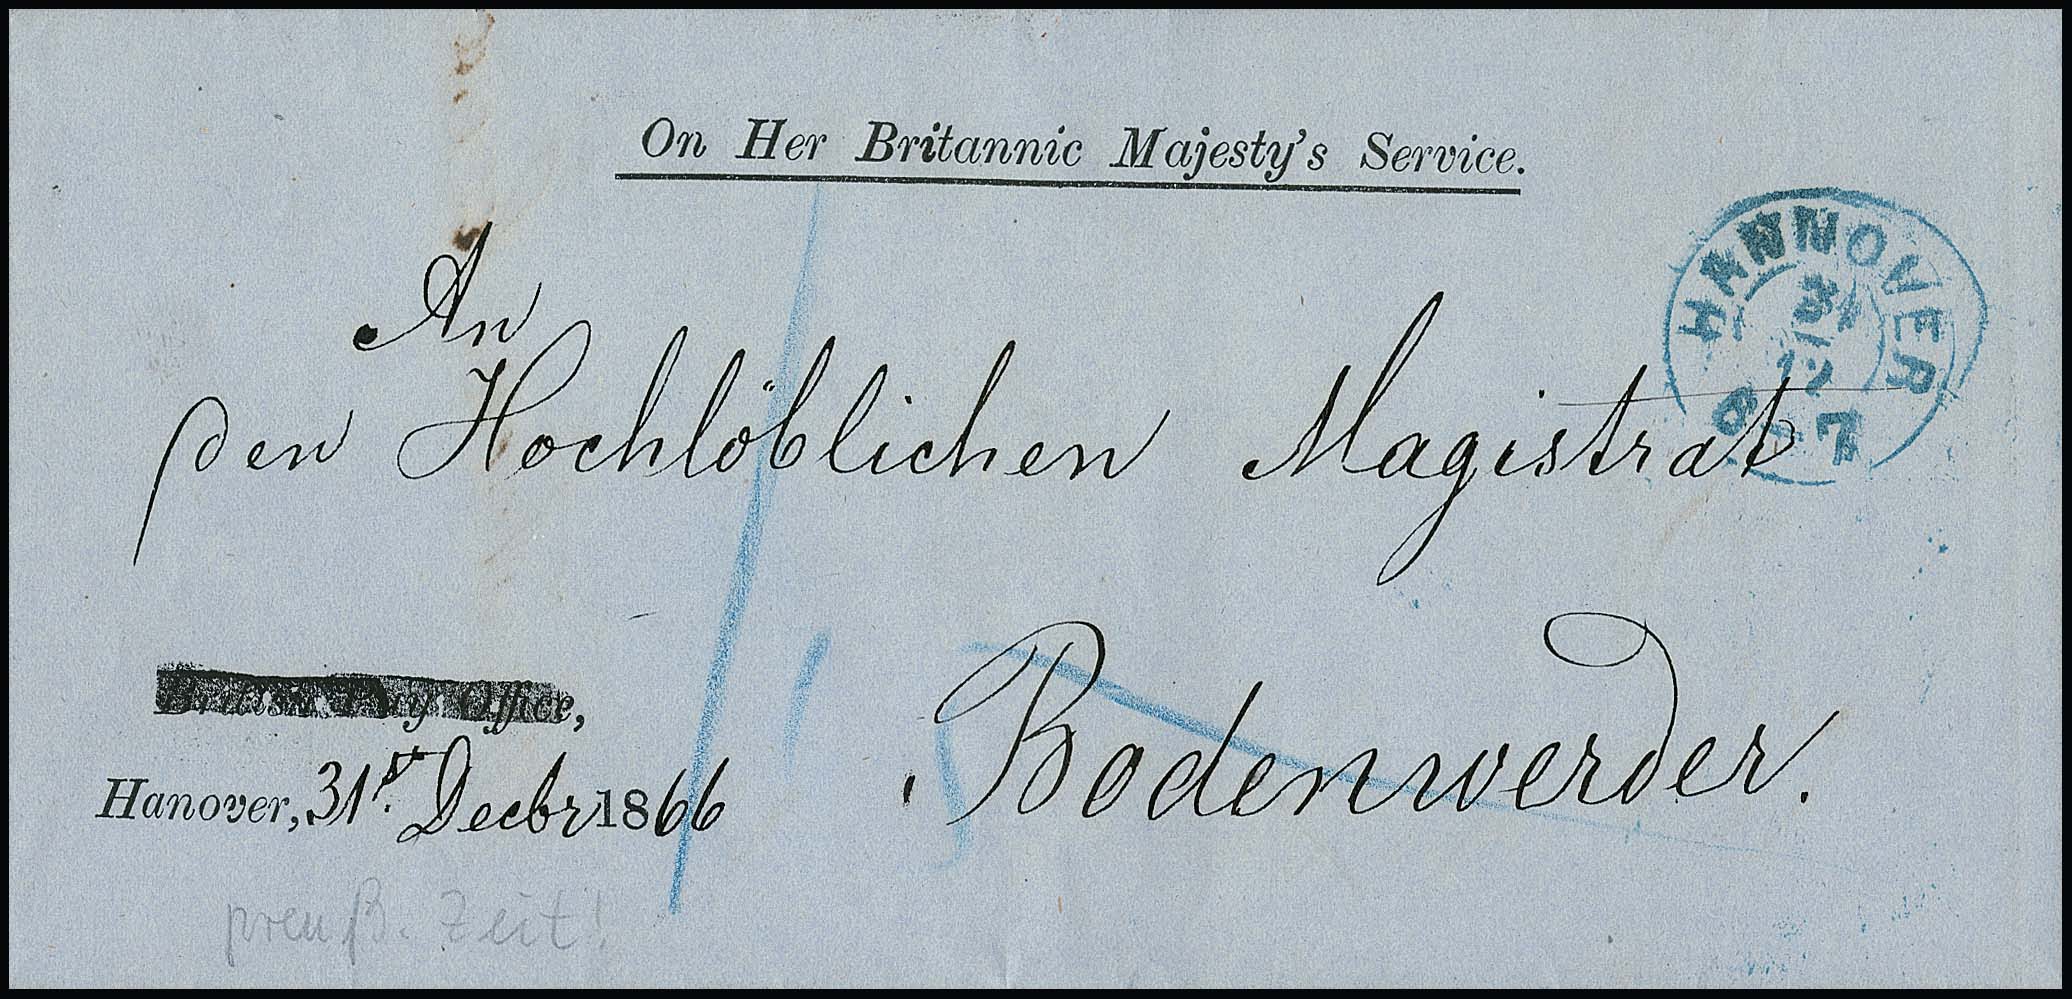 On Her Britannic Majesty's Service.
HANNOVER
31
12
6-7
An
den Hochlöblichen Magistrat
Bodenwerder.
British Pay Office,
Hanover, 31st. Decbr 1866
preuß. Zeit!